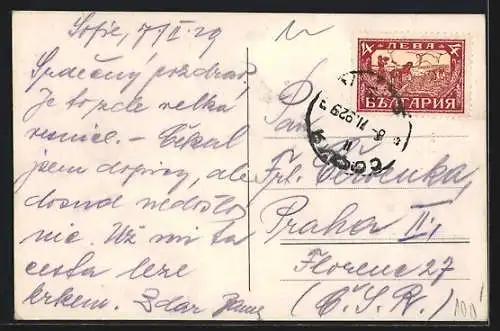 Sofie, 7/II.29
Srdečný pozdrav!
Je to zde velká
zimice. — Čekal
jsem dopisy, ale
dosud nedošlo
nic. Už mi ta
cesta leze
krkem. Zdar
4 ЛЕВА 4
БЪЛГАРИЯ
8.II.929
Pan
Frt. Červenka,
Praha II.;
Florenc 27
(Č.S.R.)
100